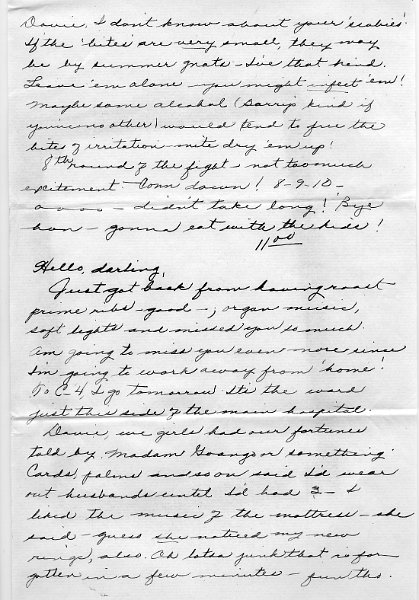 Davie, I don't know about your 'scabies'.
If the 'bites' are very small, they may
be by summer gnats – I've that kind.
Leave 'em alone – you might infect 'em!
Maybe some alcohol ( kind if
you've no other) would tend to free the
bites of irritation – mite dry 'em up!
8th round of the fight – not too much
excitement – Conn down! 8-9-10 –
o o o o – didn't take long! Bye
hon – gonna eat with the kids!
11:00
Hello, darling,
Just got back from having roast
prime ribs – good –, organ music,
soft lights and missed you so much.
Am going to miss you even more since
I'm going to work away from 'home'.
To C-4 I go tomorrow. It's the ward
just this side of the main hospital.
Davie, we girls had our fortunes
told by Madam or something.
Cards, palms and so on said I'd wear
out husbands until I'd had 3 – I
liked the music of the mattress – she
said – guess she noticed my new
rings, also. Oh lotsa junk that is for
gotten in a few minutes – fun tho.